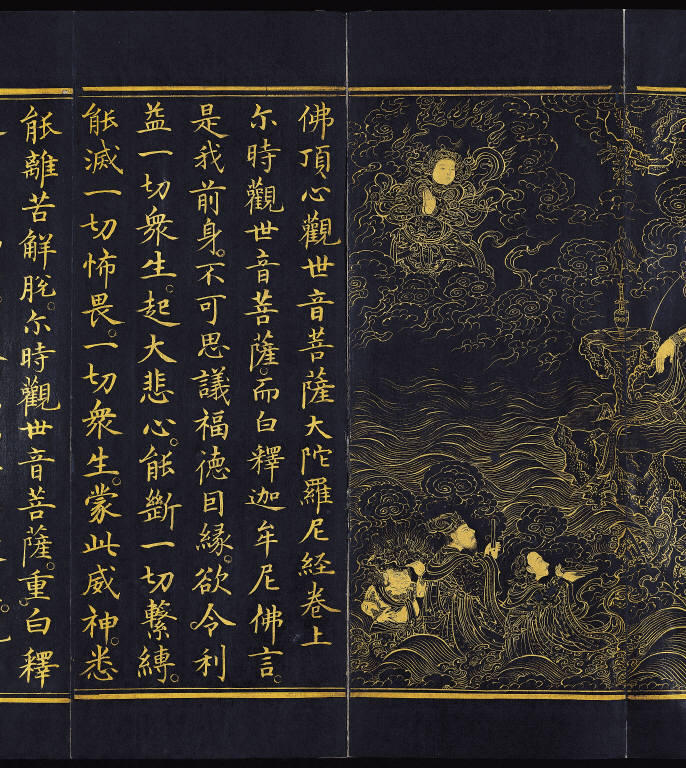 佛頂心觀世音菩薩大陀羅尼經卷上
尒時觀世音菩薩。而白釋迦牟尼佛言。
是我前身。不可思議福德因緣。欲令利
益一切衆生。起大悲心。能斷一切繫縛。
能滅一切怖畏。一切衆生。蒙此威神。悉
能離苦解脫。尒時觀世音菩薩。重白釋